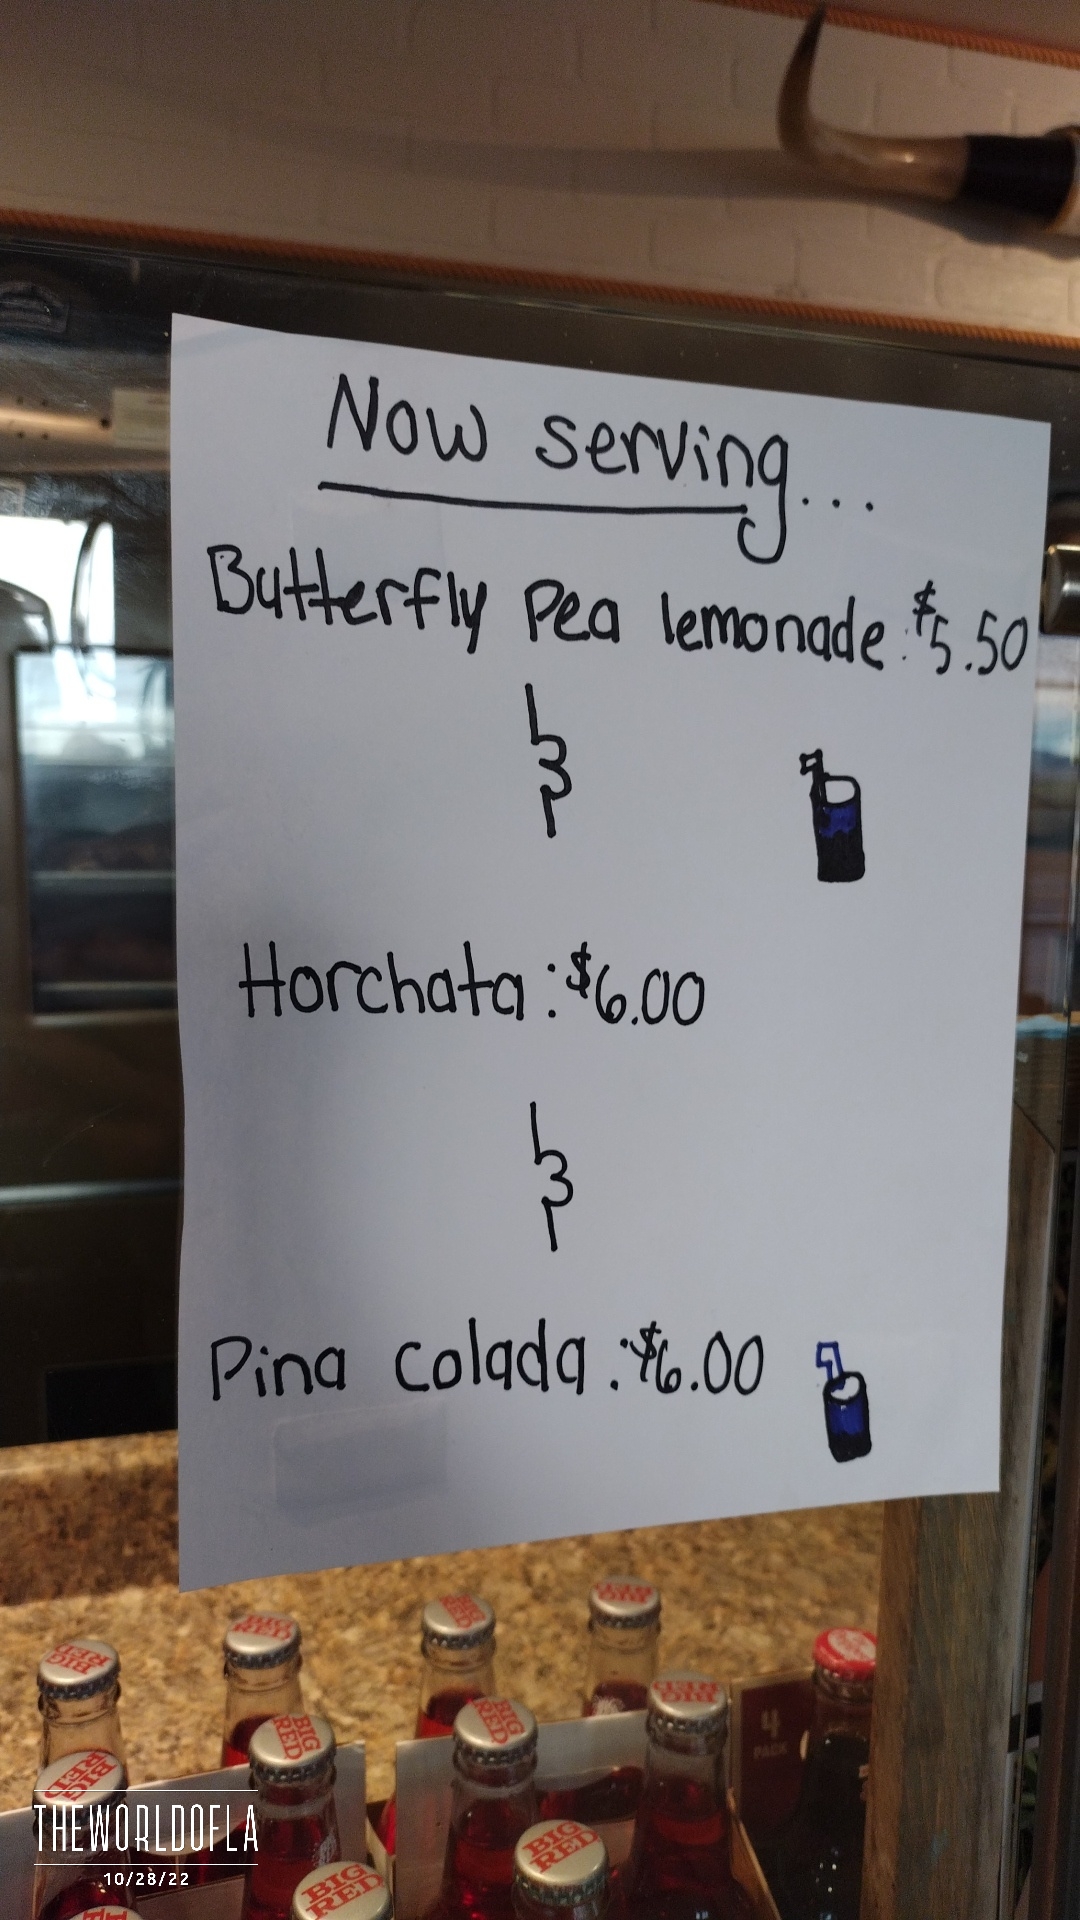 Now serving...
Butterfly Pea lemonade: $5.50
&
Horchata: $6.00
&
Pina colada: $6.00
BIG RED
BIG RED
BIG RED
BIG RED
BIG RED
BIG RED
BIG RED
BIG RED
BIG RED
BIG RED
4
PACK
THEWORLDOFLA
10/28/22